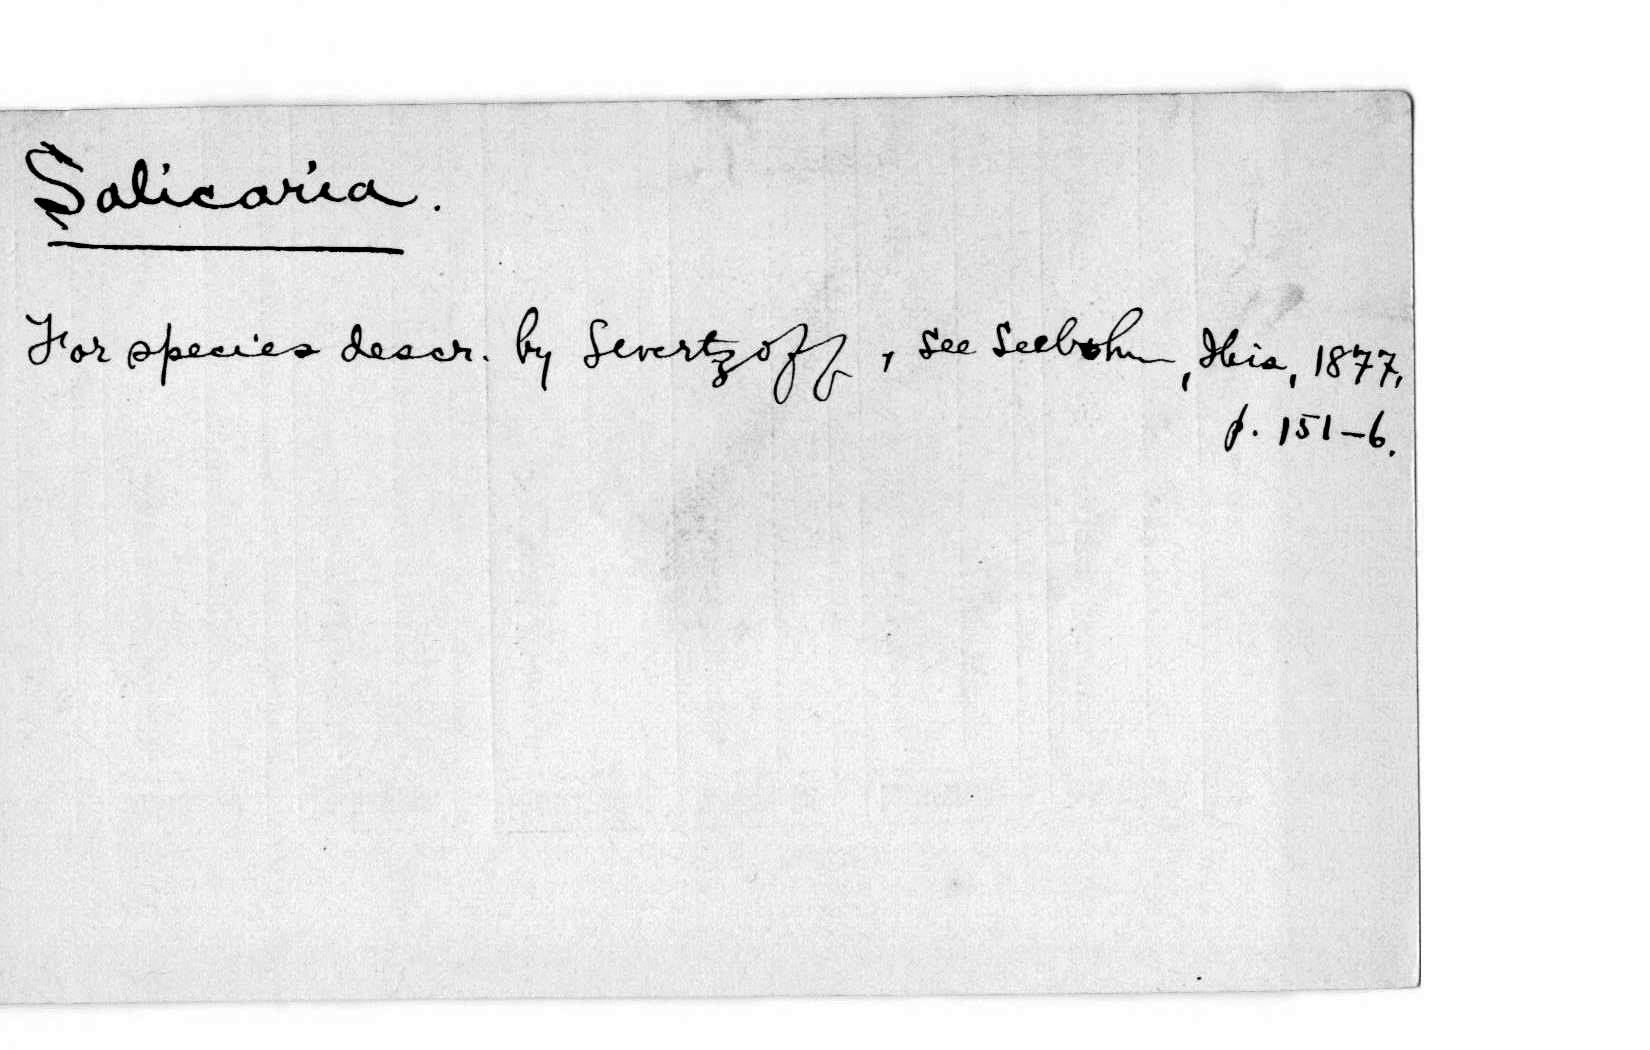 Salicaria.
For species descr. by Severtzoff, see Seebohm, Ibis, 1877,
p. 151-6.